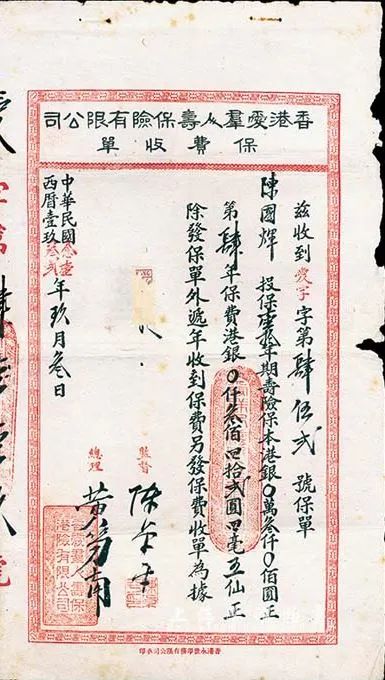 香港愛羣人壽保險有限公司
保費收單
茲收到愛字字第肆伍弍號保單
陳國輝 投保壹拾年期壽險保本港銀〇萬叁仟〇佰圓正
第肆年保費港銀〇仟叁佰四拾弍圓四毫五仙正
除發保單外遞年收到保費另發保費收單為據
監督
總理
香港愛羣人壽保險有限公司
中華民國叁壹
西曆壹玖叁弍年玖月叁日
香港永發印務有限公司承印